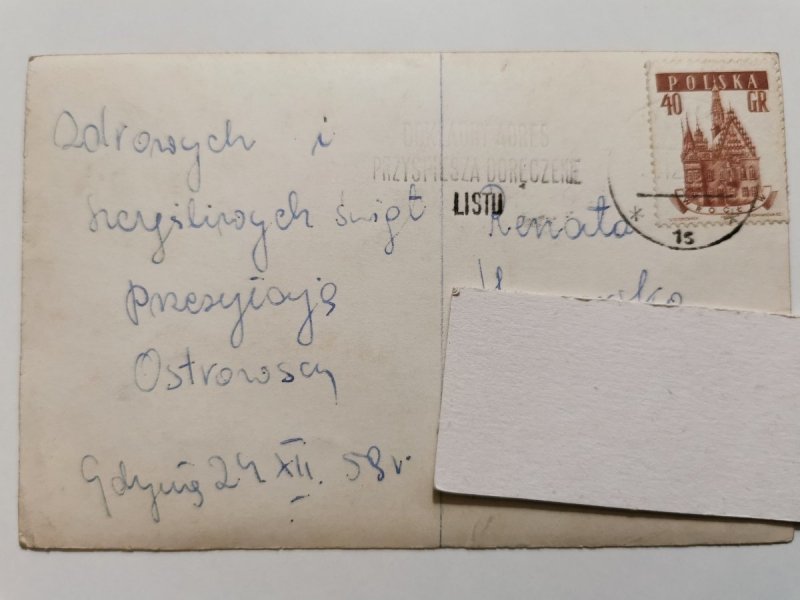 Zdrowych i
szczęśliwych świąt
przesyłają
Ostrowscy
Gdynia 24 XII. 58 r.
DOKŁADNY ADRES
PRZYSPIESZA DORĘCZENIE
LISTU
POLSKA
40 GR
WROCŁAW
1s
Renata